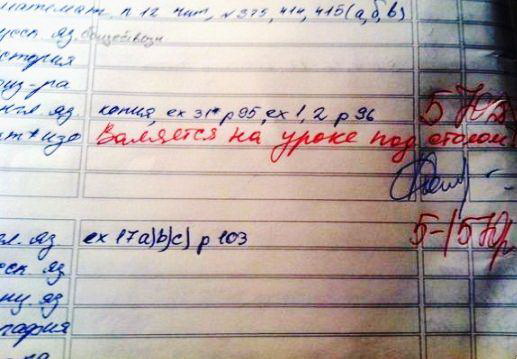 п 12 чит, № 375, 414, 415(а, б, в)
яз. Обществозн
стория
из-ра
нгл. яз копия, ex 31* p 95, ex 1, 2 p 96 5
ит + изо Валяется на уроке под столом!
гл. яз ex 17a)b)c) p 103 5-/5
сск. яз.
яз
графия